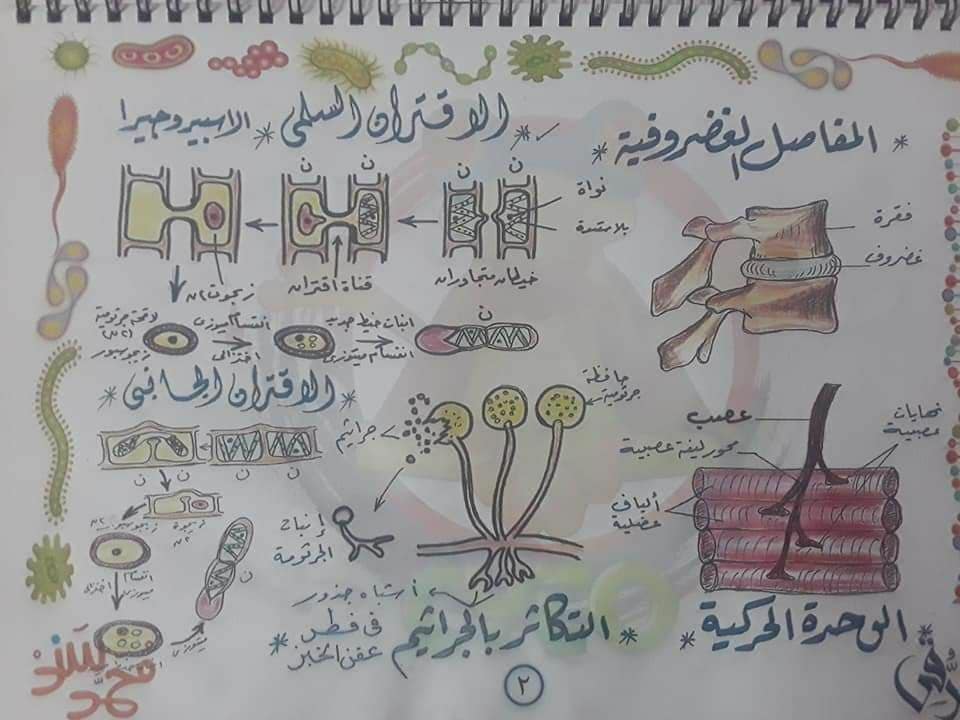 * المفاصل الغضروفية *
فقرة
غضروف
* الاقتران السلمي * الاسبيروجيرا
ن
ن
ن
ن
نواة
بلاستيدة
خيطان متجاوران
قناة اقتران
زيجوت ٢ن
لاقحة جرثومية
(٢ن)
زيجوسبور
انقسام ميوزى
اختزالى
انبات خيط جديد
انقسام ميتوزى
ن
* الاقتران الجانبى *
ن
ن
ن
ن
زيجوت
٢ن
زيجوسبور ٢ن
انقسام
ميوزى
اختزالى
ميتوزى
ن
حافظة
جرثومية
جراثيم
إنبات
الجرثومة
أشباه جذور
* التكاثر بالجراثيم *
فى فطر
عفن الخبز
نهايات
عصبية
عصب
محور ليفة عصبية
ألياف
عضلية
* الوحدة الحركية *
٢
محمد